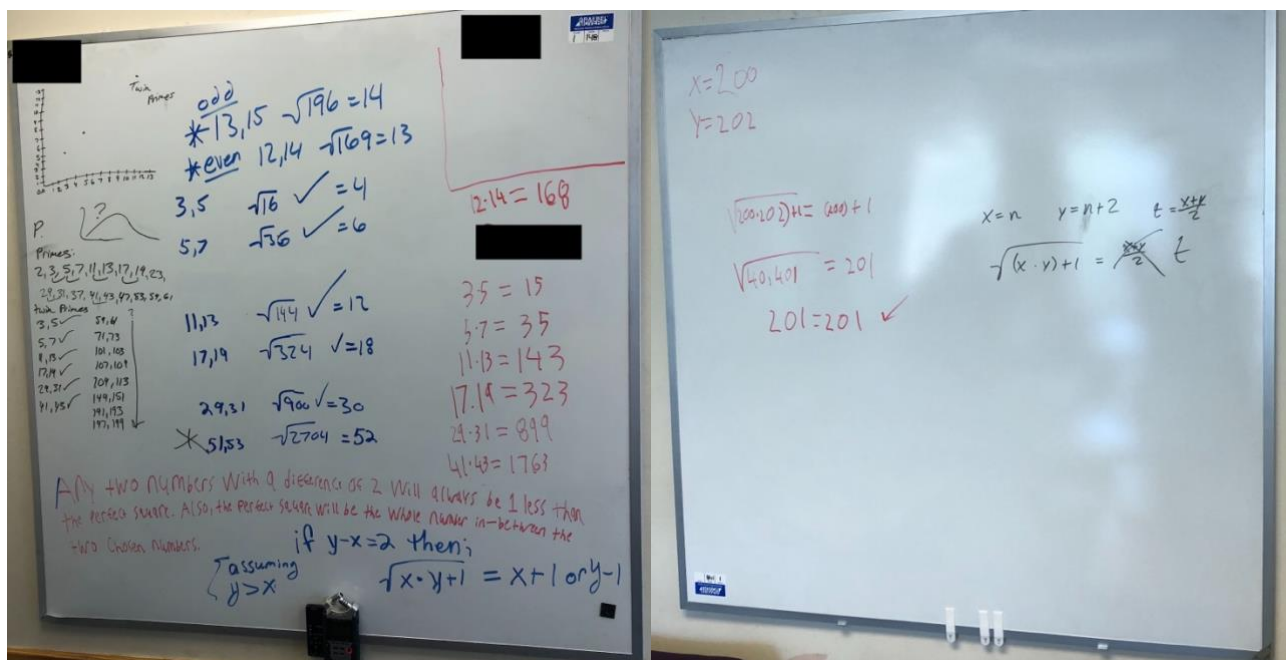 Twin
Primes
odd
*13,15 √196 = 14
*even 12,14 √169 = 13
3,5 √16 ✓ = 4
5,7 √36 ✓ = 6
11,13 √144 ✓ = 12
17,19 √324 ✓ = 18
29,31 √900 ✓ = 30
*51,53 √2704 = 52
P.
?
Primes:
2,3,5,7,11,13,17,19,23,
29,31,37,41,43,47,53,59,61
Twin Primes
3,5 ✓
5,7 ✓
11,13 ✓
17,19 ✓
29,31 ✓
41,43 ✓
?
59,61
71,73
101,103
107,109
109,113
149,151
191,193
197,199
12·14 = 168
3·5 = 15
5·7 = 35
11·13 = 143
17·19 = 323
29·31 = 899
41·43 = 1763
Any two numbers with a difference of 2 will always be 1 less than
the perfect square. Also, the perfect square will be the whole number in-between the
two chosen numbers.
if y-x=2 then;
assuming
y>x
√x·y+1 = x+1 or y-1
x=200
y=202
√(200·202)+1 = (200)+1
√40,401 = 201
201=201 ✓
x=n y=n+2 t=x+y/2
√(x·y)+1 = x+y/2 t